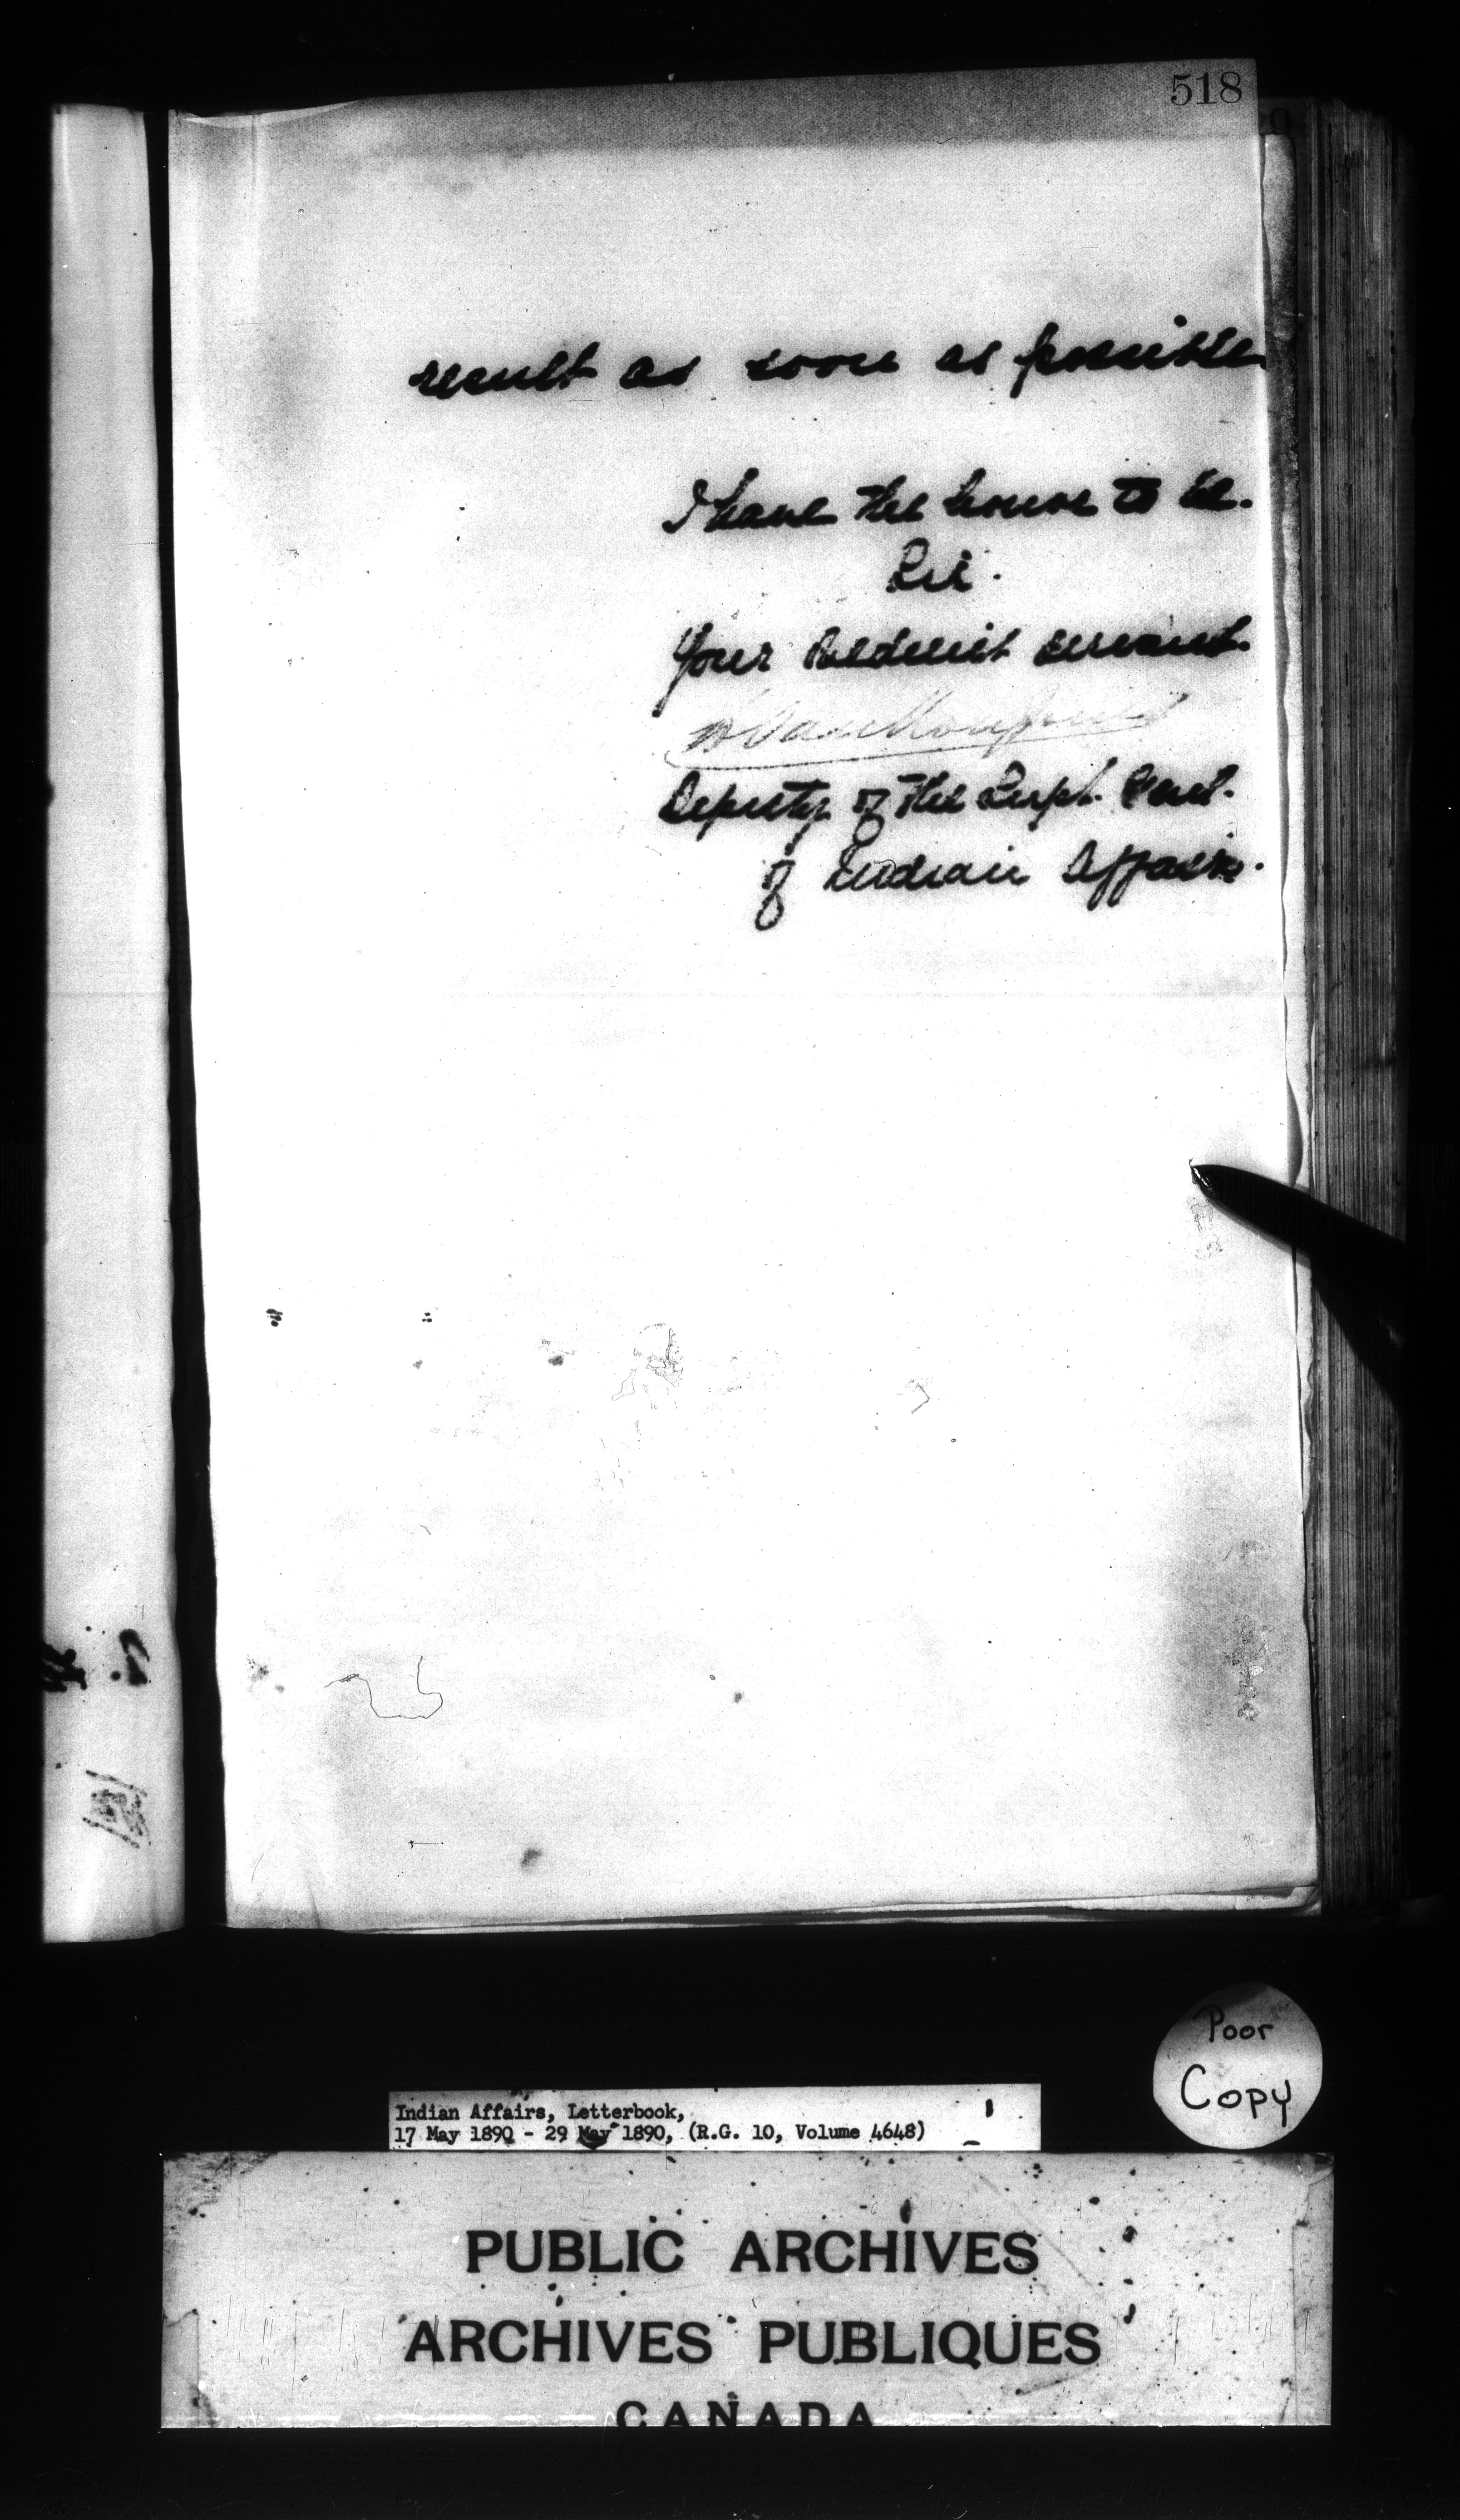 518
result as soon as possible
I have the honor to be.
Sir.
Your obedient servant.
L. Vankoughnet
Deputy of the Supt. Genl.
of Indian Affairs.
Poor
Copy
Indian Affairs, Letterbook,
17 May 1890 - 29 May 1890, (R.G. 10, Volume 4648)
PUBLIC ARCHIVES
ARCHIVES PUBLIQUES
CANADA